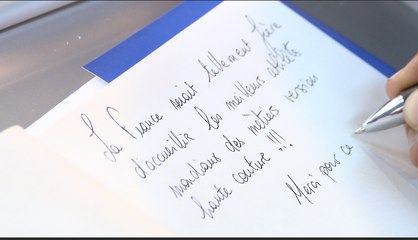 La France serait tellement fière
d'accueillir les meilleurs athlètes
mondiaux des métiers version
haute couture !!!
Merci pour ce